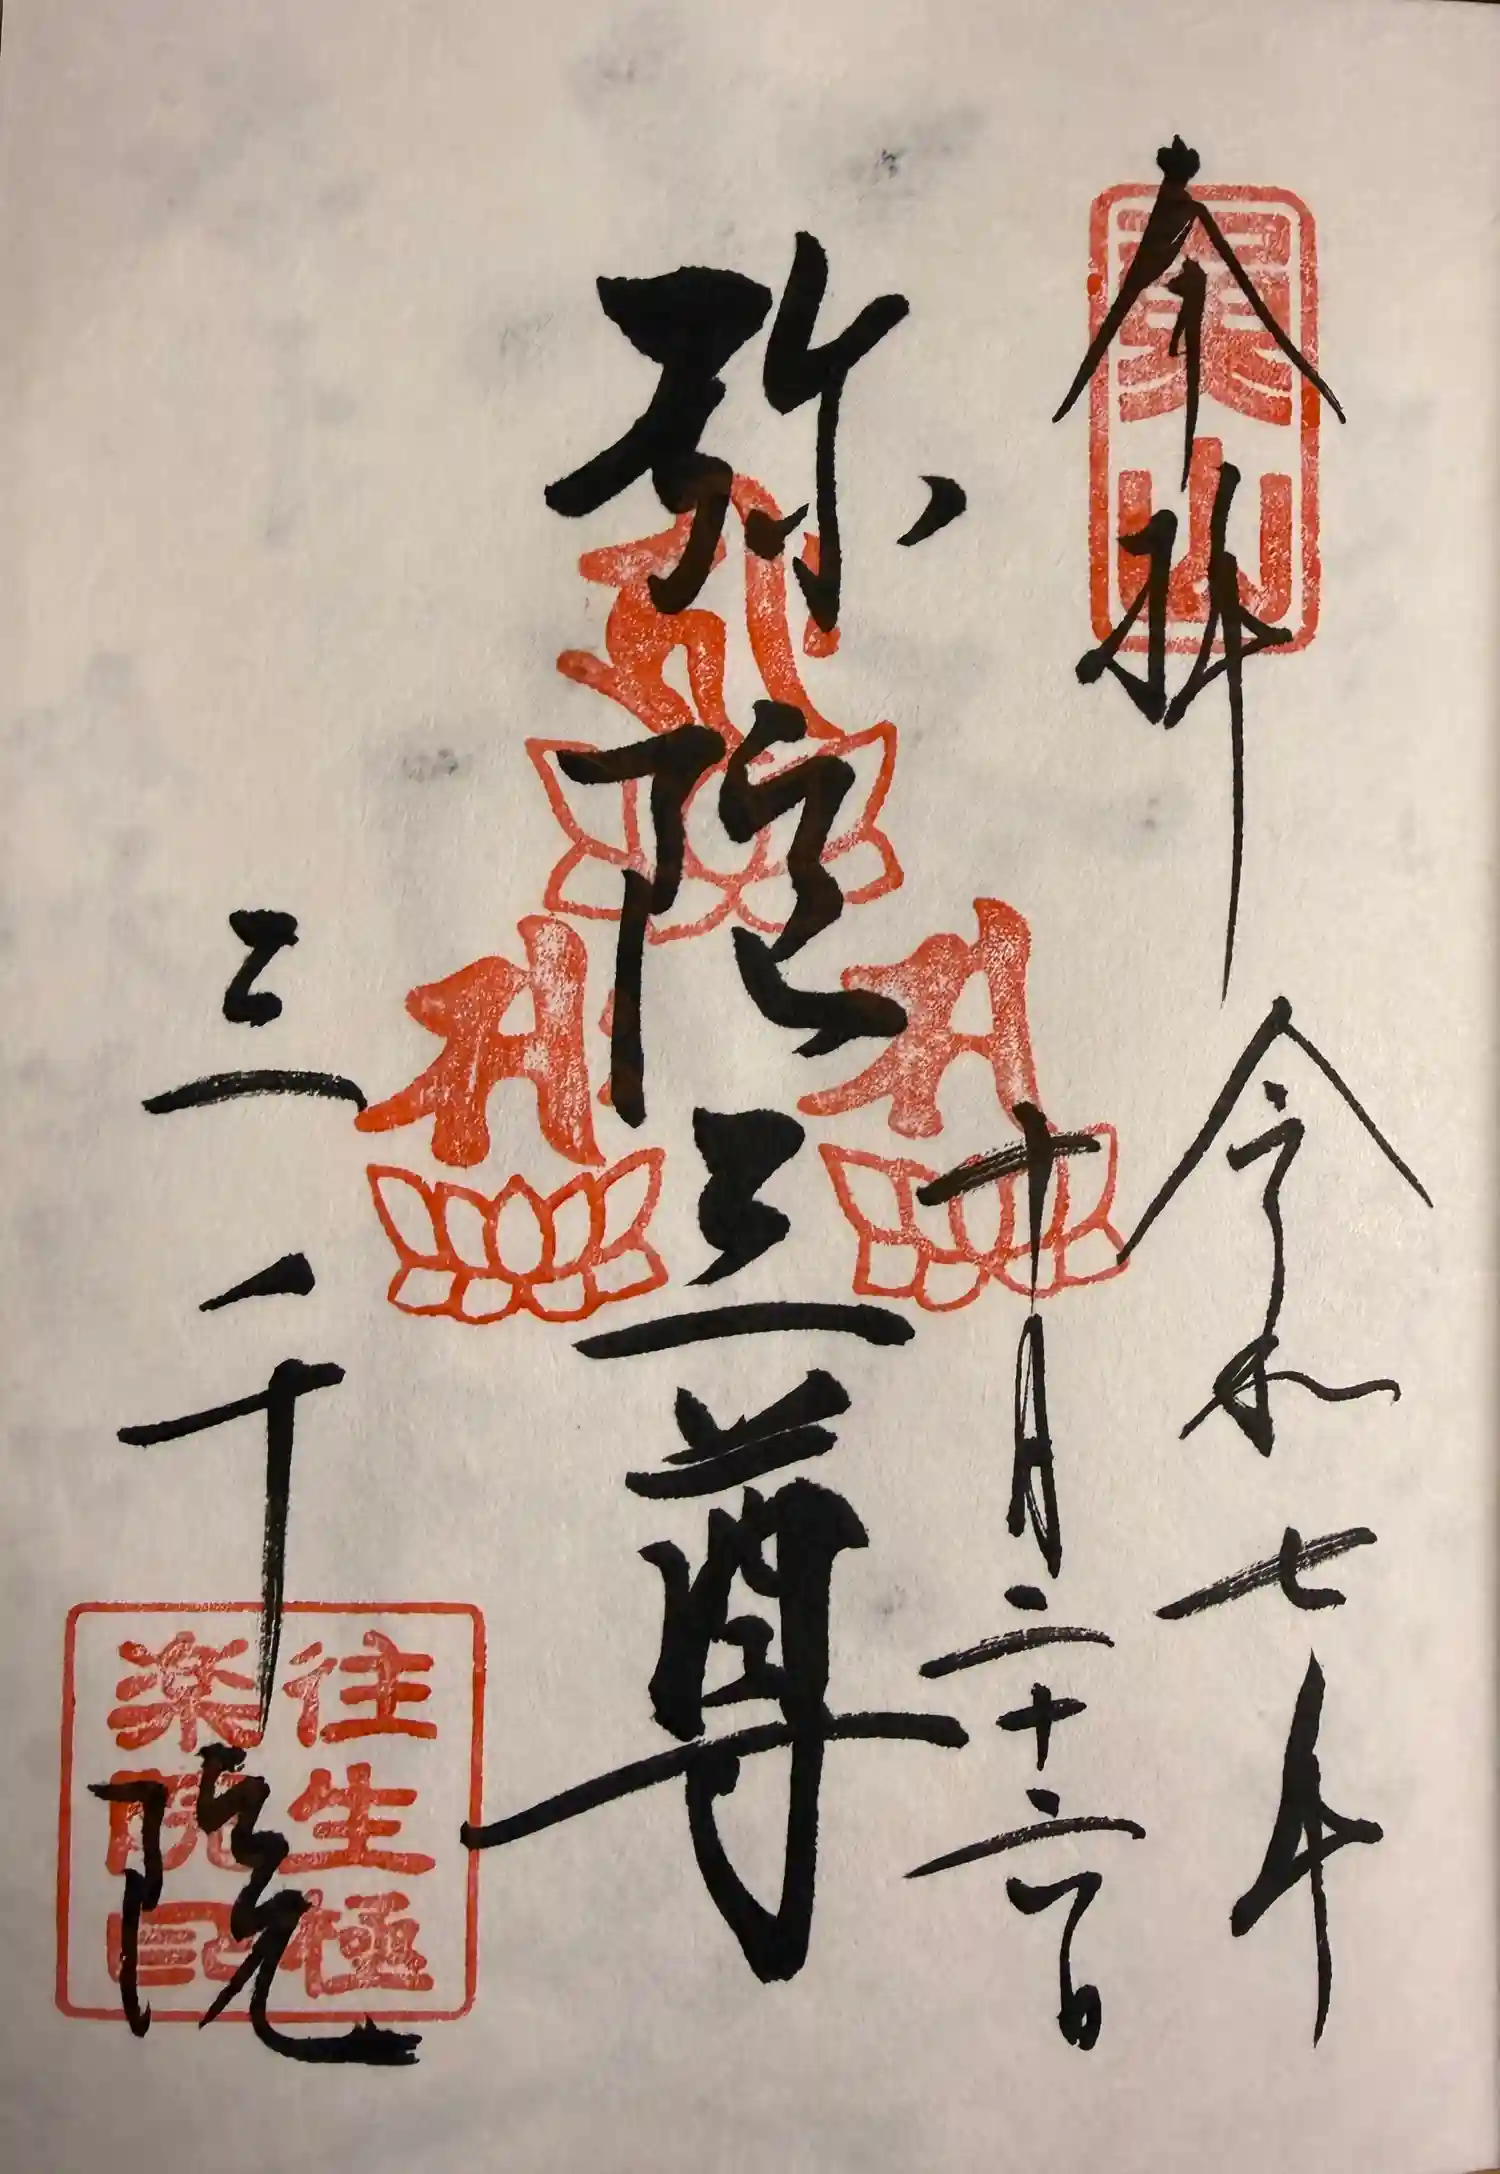 奉拝
魚山
令和七年
十月二十六日
弥陀三尊
三千院
往生極
楽院印